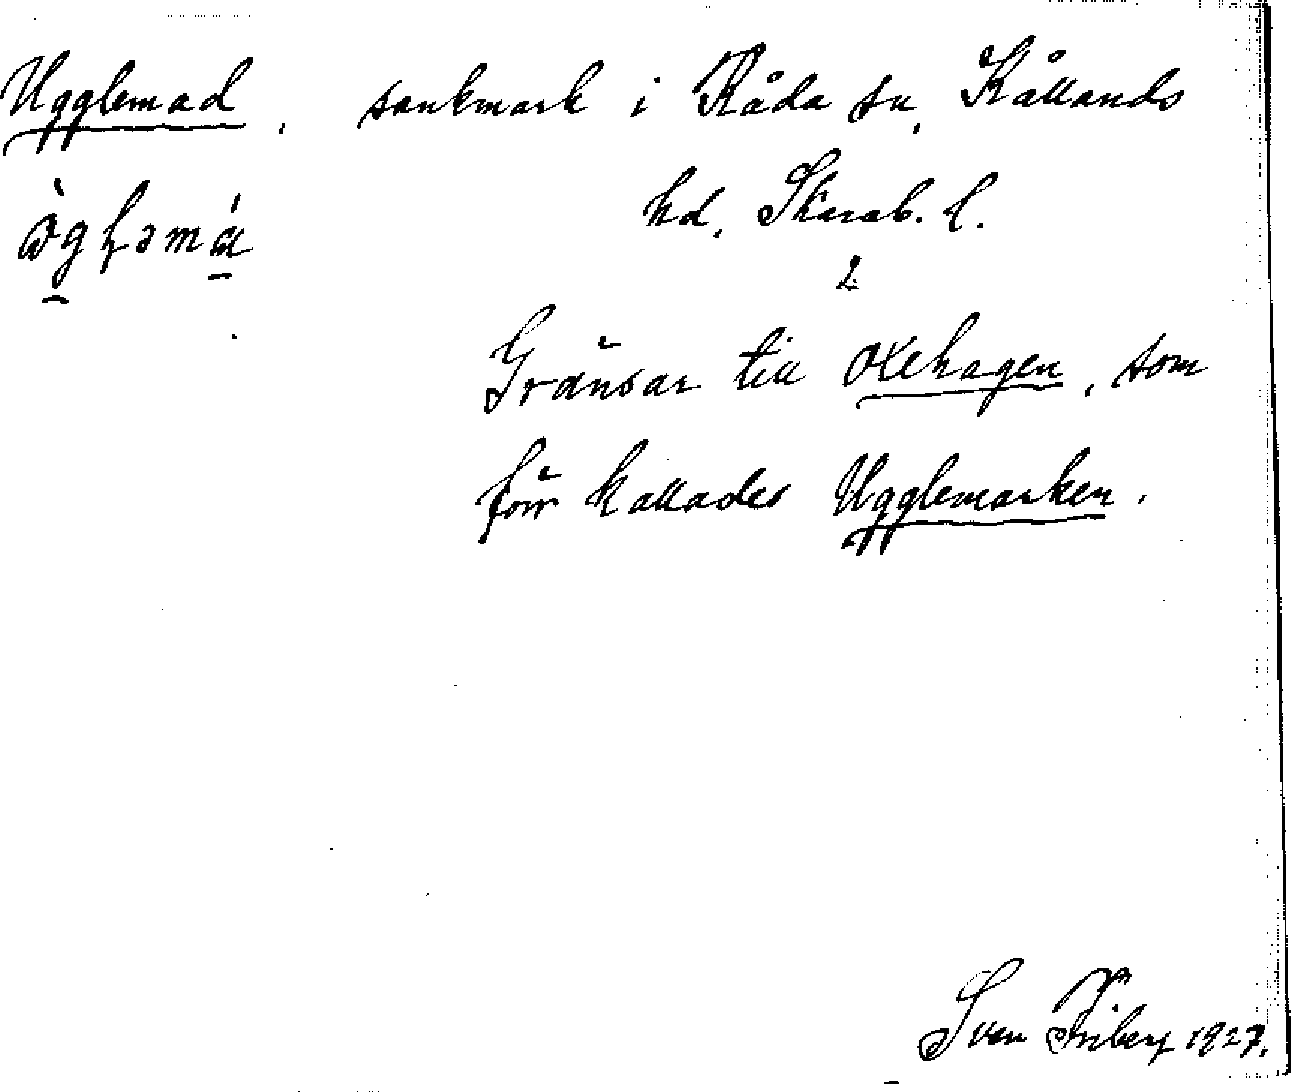 Ugglemad, sankmark i Råda sn, Kållands
hd, Skarab. l.
2
Gränsar till Oxehagen, som
förr kallades Ugglemarken.
Sven Friberg 1927.